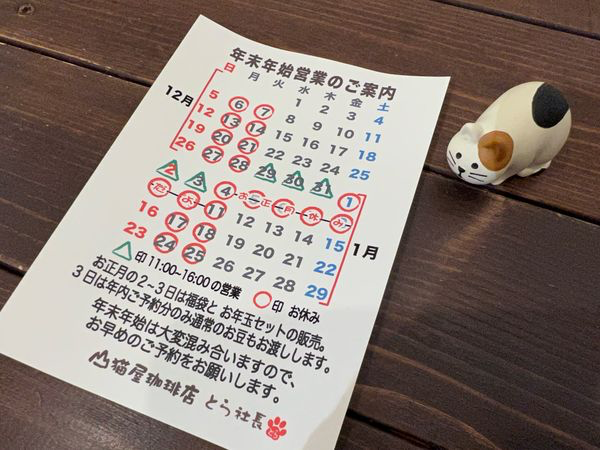 年末年始営業のご案内
日 月 火 水 木 金 土
12月
1 2 3 4
5 6 7 8 9 10 11
12 13 14 15 16 17 18
19 20 21 22 23 24 25
26 27 28 29 30 31 1
2 3 4 お正月休み
だよ 11 12 13 14 15
1月
16 17 18 19 20 21 22
23 24 25 26 27 28 29
△印11:00~16:00の営業 ○印 お休み
お正月の2~3日は福袋とお年玉セットの販売。
3日は年内ご予約分のみ通常のお豆もお渡しします。
年末年始は大変混み合いますので、
お早めのご予約をお願いします。
山猫屋珈琲店 とら社長